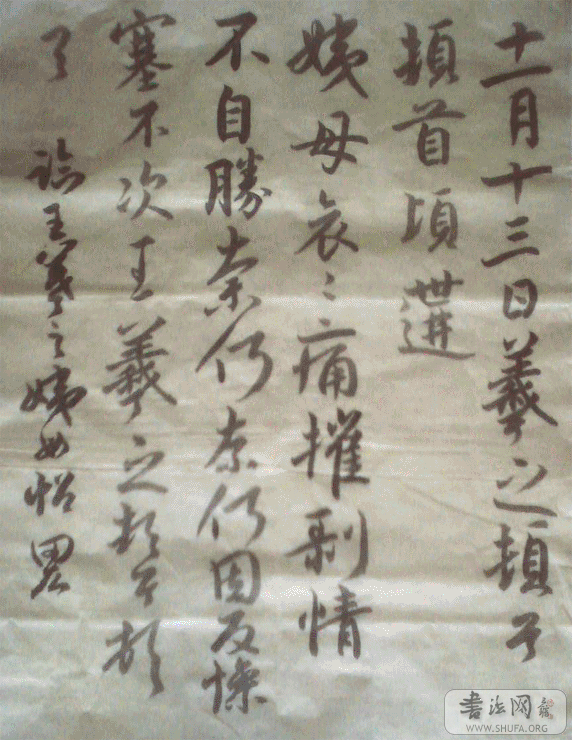 十一月十三日羲之頓首
頓首頃遘
姨母哀〻痛摧剥情
不自勝奈何奈何因反慘
塞不次王羲之頓首頓
首 臨王羲之姨母帖
書法网
WWW.SHUFA.ORG